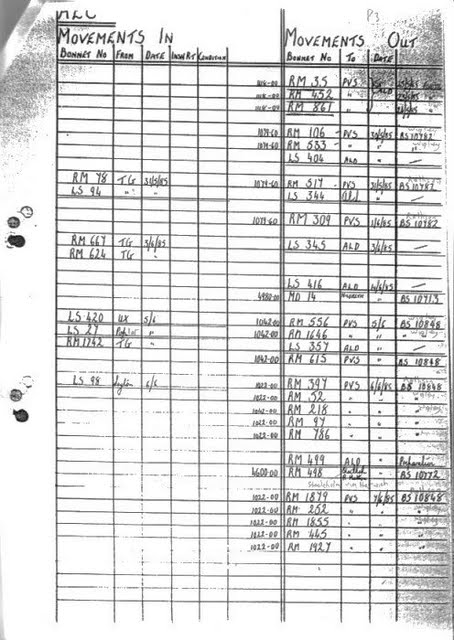 AEC
P3
MOVEMENTS IN MOVEMENTS OUT
BONNET NO FROM DATE INSW RT CONDITION BONNET NO TO DATE
RM 35 PVS
RM 452 "
RM 861 "
ALD
1079-60 RM 106 PVS 30/5/85 BS 10782
1079-60 RM 533 " " "
LS 404 ALD " —
RM 78 TG 31/5/85 1079-60 RM 517 PVS 31/5/85 BS 10782
LS 94 " " LS 344 ALD " —
1079-60 RM 309 PVS 1/6/85 BS 10782
RM 667 TG 3/6/85 LS 345 ALD 3/6/85 —
RM 624 TG "
LS 416 ALD 4/6/85 —
4980-00 MD 14 " BS 10713
LS 420 UX 5/6 1042-00 RM 556 PVS 5/6 BS 10848
LS 27 " 1042-00 RM 1646 " " "
RM 1742 TG " LS 357 ALD " —
1042-00 RM 615 PVS " BS 10848
LS 98 6/6 1022-00 RM 397 PVS 6/6/85 BS 10848
1022-00 RM 52 " " "
RM 218 " " "
1022-00 RM 97 " " "
1022-00 RM 786 " " "
RM 499 ALD " Preparation
4600-00 RM 498 " BS 10772
1022-00 RM 1879 PVS 7/6/85 BS 10848
1022-00 RM 252 " " "
1022-00 RM 1855 " " "
1022-00 RM 445 " " "
1022-00 RM 1927 " " "